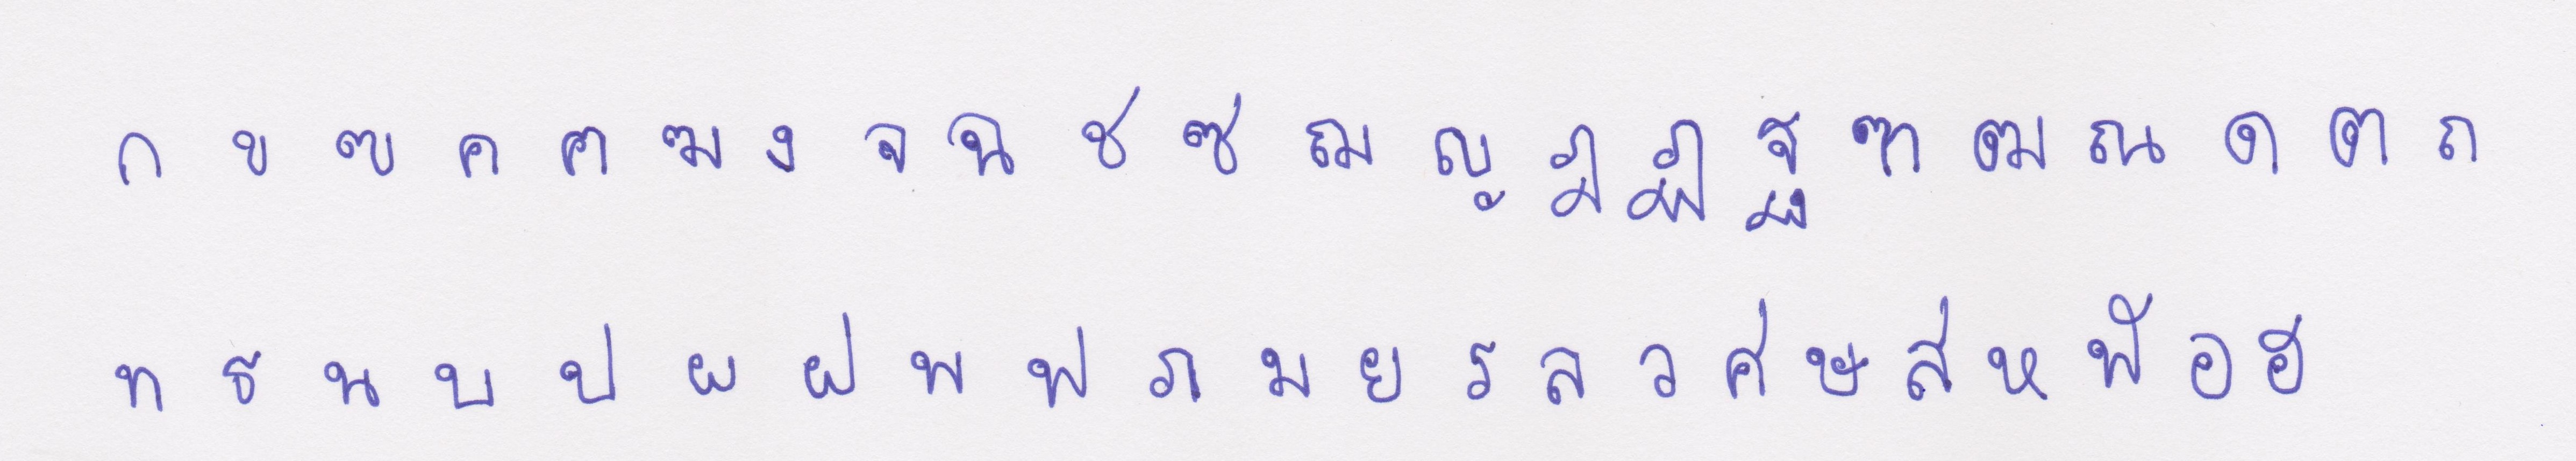 ก ข ฃ ค ฅ ฆ ง จ ฉ ช ซ ฌ ญ ฎ ฏ ฐ ฑ ฒ ณ ด ต ถ
ท ธ น บ ป ผ ฝ พ ฟ ภ ม ย ร ล ว ศ ษ ส ห ฬ อ ฮ